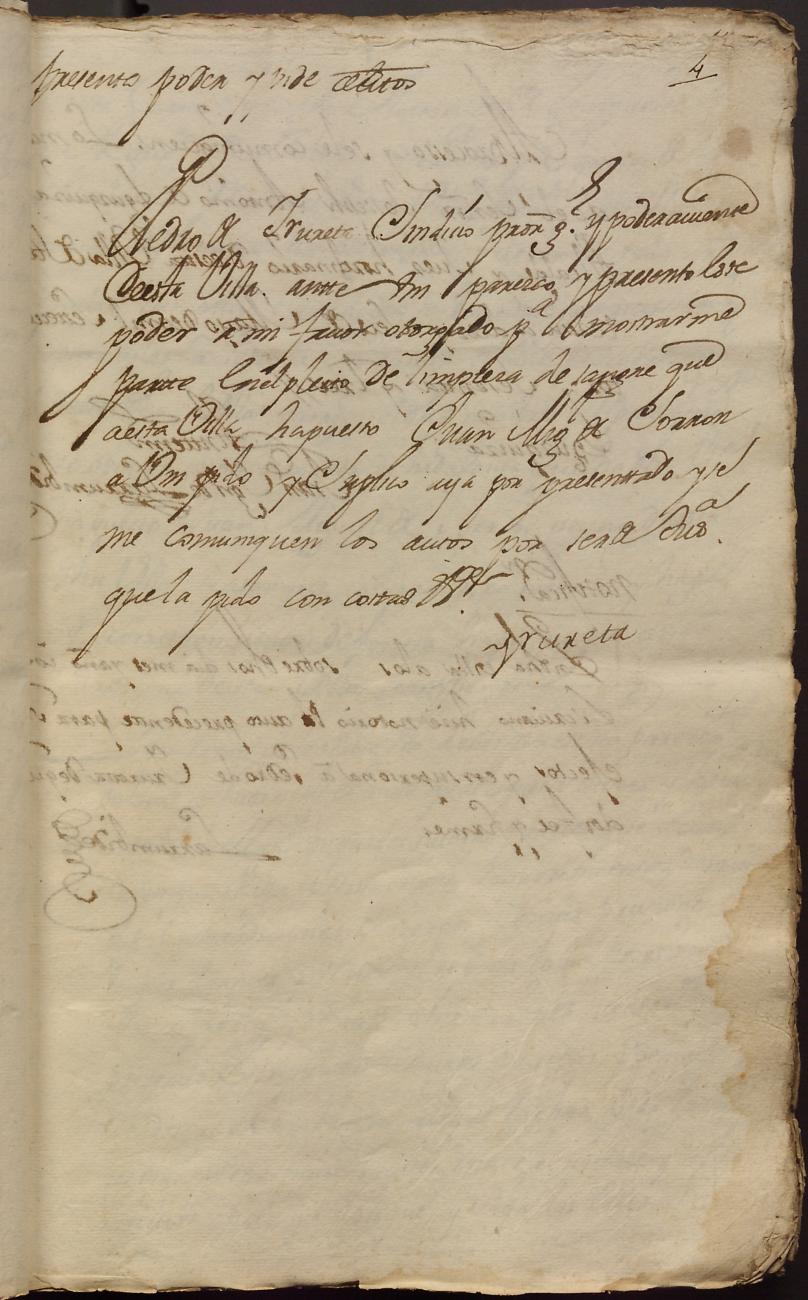 presenta poder y pide autos
4
Pedro de Yrureta Sindico pror. gl. y poderaviente
de esta Villa. ante Vm parezco, y presento este
poder a mi favor otorgado pa. mostrarme
parte en el pleito de limpieza de sangre que
a esta Villa ha puesto Juan Migl de
a Vm pido y Suplico aya por presentado y se
me comuniquen los autos por ser de Justa.
que la pido con costas
Yrureta